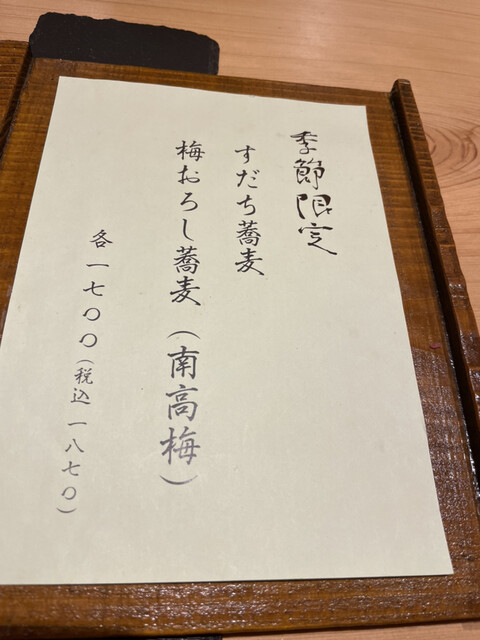 季節限定
すだち蕎麦
梅おろし蕎麦（南高梅）
各一七〇〇（税込一八七〇）